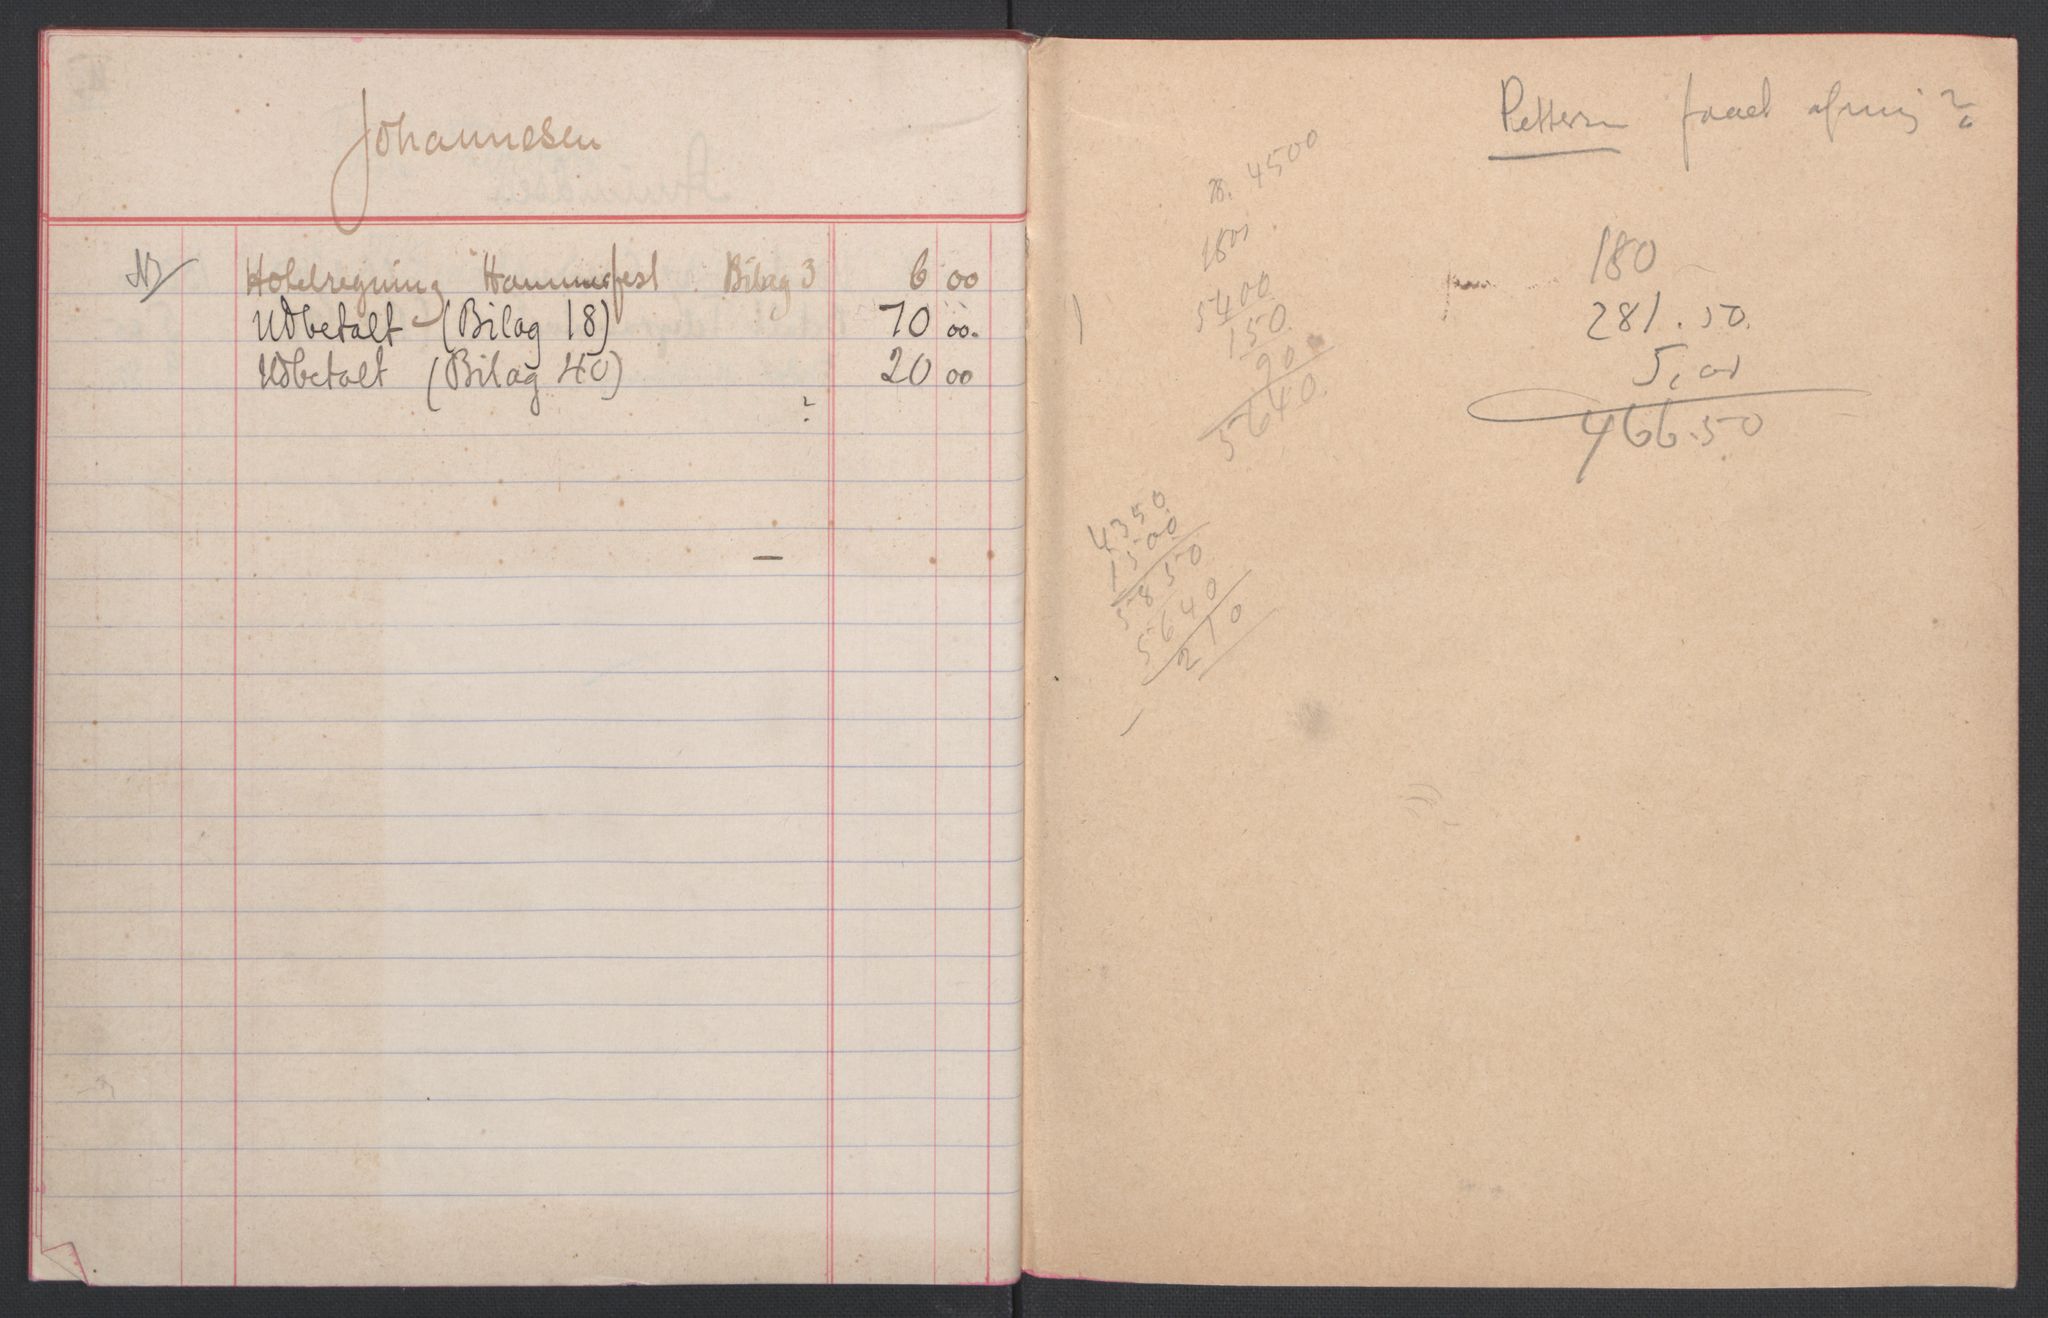 Johannesen
Hotelregning Hammerfest Bilag 3 6 00
Udbetalt (Bilag 18) 70 00.
Udbetalt (Bilag 40) 20 00
?
Pettersen faaet af mig?
4500
5400
150
90
5640.
4350.
1500
5850
5640
210
180
281.50.
5,00
466.50